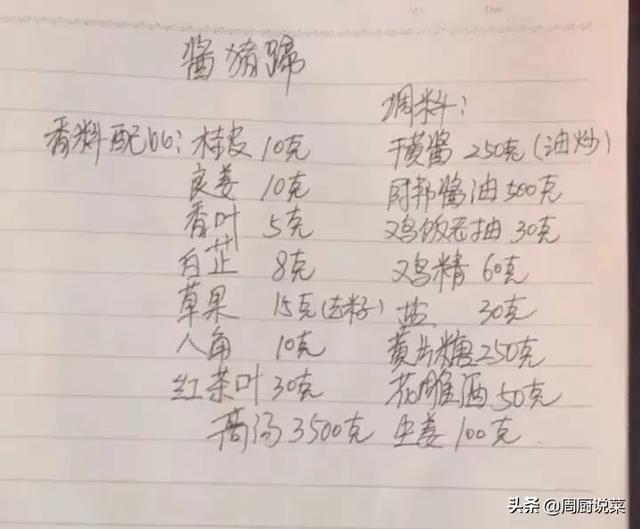 酱猪蹄
调料：
香料配比：桂皮 10克 干黄酱 250克（油炒）
良姜 10克 厨邦酱油 500克
香叶 5克 鸡饭老抽 30克
白芷 8克 鸡精 60克
草果 15克（去籽） 盐 30克
八角 10克 黄片糖 250克
红茶叶 30克 花雕酒 50克
高汤 3500克 生姜 100克
头条 @周厨说菜